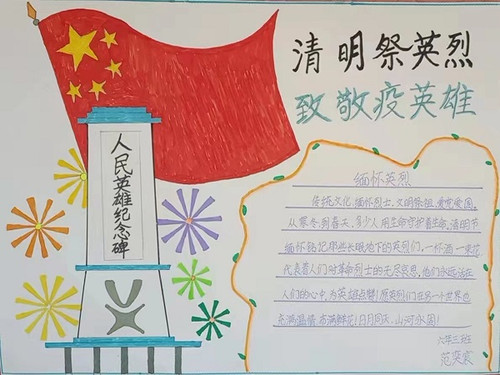 清明祭英烈
致敬疫英雄
人民英雄纪念碑
缅怀英烈
传托文化,缅怀烈士,文明祭祖,爱党爱国。
从寒冬,到春天,多少人用生命守护着生命,清明节
缅怀铭记那些长眠地下的英烈们,一杯酒一束花
代表着人们对革命烈士的无尽哀思,他们永远活在
人们的心中,为英雄点赞!愿英烈们在另一个世界也
充满温情,布满鲜花!日月同天,山河永固!
六年三班
范奕宸